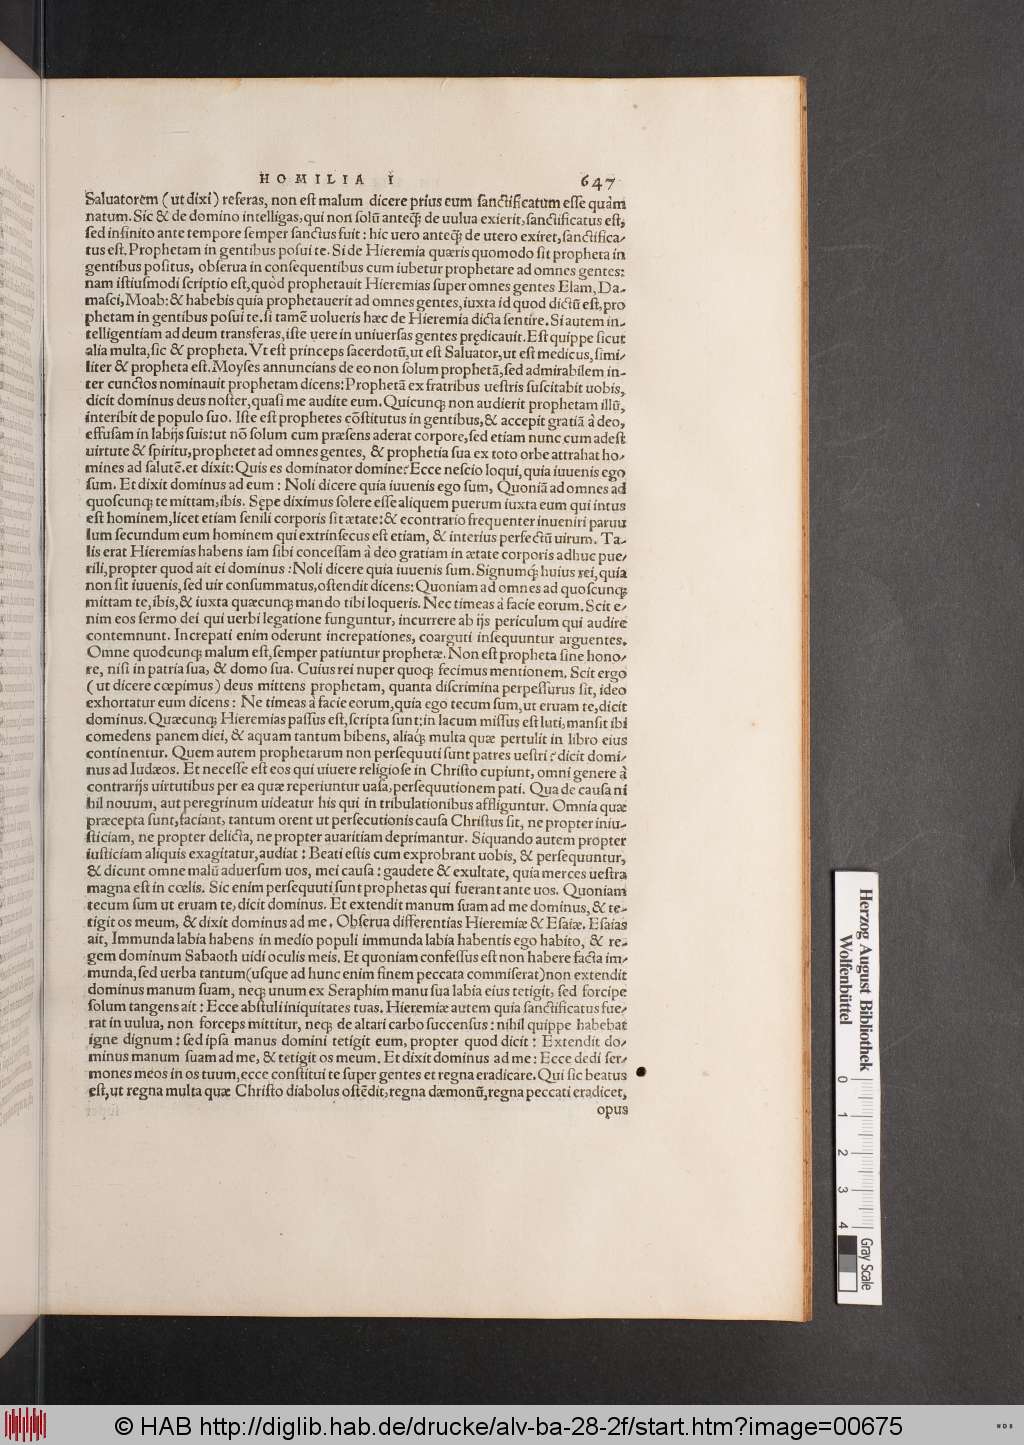 HOMILIA I 647
Saluatorem (ut dixi) referas, non est malum dicere prius eum sanctificatum esse quàm
natum. Sic & de domino intelligas, qui non solũ anteq̃ de uulua exierit, sanctificatus est,
sed infinito ante tempore semper sanctus fuit: hic uero anteq̃ de utero exiret, sanctifica-
tus est. Prophetam in gentibus posui te. Si de Hieremia quæris quomodo sit propheta in
gentibus positus, obserua in consequentibus cum iubetur prophetare ad omnes gentes:
nam istiusmodi scriptio est, quòd prophetauit Hieremias super omnes gentes Elam, Da-
masci, Moab: & habebis quia prophetauerit ad omnes gentes, iuxta id quod dictũ est, pro
phetam in gentibus posui te. si tamẽ uolueris hæc de Hieremia dicta sentire. Si autem in-
telligentiam ad deum transferas, iste uere in uniuersas gentes prędicauit. Est quippe sicut
alia multa, sic & propheta. Vt est princeps sacerdotũ, ut est Saluator, ut est medicus, simi-
liter & propheta est. Moyses annuncians de eo non solum prophetã, sed admirabilem in-
ter cunctos nominauit prophetam dicens: Prophetã ex fratribus uestris suscitabit uobis,
dicit dominus deus noster, quasi me audite eum. Quicunq; non audierit prophetam illũ,
interibit de populo suo. Iste est prophetes cõstitutus in gentibus, & accepit gratiã à deo,
effusam in labijs suis: ut nõ solum cum præsens aderat corpore, sed etiam nunc cum adest
uirtute & spiritu, prophetet ad omnes gentes, & prophetia sua ex toto orbe attrahat ho-
mines ad salutẽ. et dixit: Quis es dominator domine? Ecce nescio loqui, quia iuuenis ego
sum. Et dixit dominus ad eum: Noli dicere quia iuuenis ego sum, Quoniã ad omnes ad
quoscunq; te mittam, ibis. Sępe diximus solere esse aliquem puerum iuxta eum qui intus
est hominem, licet etiam senili corporis sit ætate: & econtrario frequenter inueniri paruu
lum secundum eum hominem qui extrinsecus est etiam, & interius perfectũ uirum. Ta-
lis erat Hieremias habens iam sibi concessam à deo gratiam in ætate corporis adhuc pue-
rili, propter quod ait ei dominus: Noli dicere quia iuuenis sum. Signumq; huius rei, quia
non sit iuuenis, sed uir consummatus, ostendit dicens: Quoniam ad omnes ad quoscunq;
mittam te, ibis, & iuxta quæcunq; mando tibi loqueris. Nec timeas à facie eorum. Scit e-
nim eos sermo dei qui uerbi legatione funguntur, incurrere ab ijs periculum qui audire
contemnunt. Increpati enim oderunt increpationes, coarguti insequuntur arguentes.
Omne quodcunq; malum est, semper patiuntur prophetæ. Non est propheta sine hono-
re, nisi in patria sua, & domo sua. Cuius rei nuper quoq; fecimus mentionem. Scit ergo
(ut dicere cœpimus) deus mittens prophetam, quanta discrimina perpessurus sit, ideo
exhortatur eum dicens: Ne timeas à facie eorum, quia ego tecum sum, ut eruam te, dicit
dominus. Quæcunq; Hieremias passus est, scripta sunt; in lacum missus est luti, mansit ibi
comedens panem diei, & aquam tantum bibens, aliaq́; multa quæ pertulit in libro eius
continentur. Quem autem prophetarum non persequuti sunt patres uestri? dicit domi-
nus ad Iudæos. Et necesse est eos qui uiuere religiose in Christo cupiunt, omni genere à
contrarijs uirtutibus per ea quæ reperiuntur uasa, persequutionem pati. Qua de causa ni
hil nouum, aut peregrinum uideatur his qui in tribulationibus affliguntur. Omnia quæ
præcepta sunt, faciant, tantum orent ut persecutionis causa Christus sit, ne propter iniu-
sticiam, ne propter delicta, ne propter auaritiam deprimantur. Siquando autem propter
iusticiam aliquis exagitatur, audiat: Beati estis cum exprobrant uobis, & persequuntur,
& dicunt omne malũ aduersum uos, mei causa: gaudete & exultate, quia merces uestra
magna est in cœlis. Sic enim persequuti sunt prophetas qui fuerant ante uos. Quoniam
tecum sum ut eruam te, dicit dominus. Et extendit manum suam ad me dominus, & te-
tigit os meum, & dixit dominus ad me. Obserua differentias Hieremiæ & Esaiæ. Esaias
ait, Immunda labia habens in medio populi immunda labia habentis ego habito, & re-
gem dominum Sabaoth uidi oculis meis. Et quoniam confessus est non habere facta im-
munda, sed uerba tantum (usque ad hunc enim finem peccata commiserat) non extendit
dominus manum suam, neq; unum ex Seraphim manu sua labia eius tetigit, sed forcipe
solum tangens ait: Ecce abstuli iniquitates tuas. Hieremiæ autem quia sanctificatus fue-
rat in uulua, non forceps mittitur, neq; de altari carbo succensus: nihil quippe habebat
igne dignum: sed ipsa manus domini tetigit eum, propter quod dicit: Extendit do-
minus manum suam ad me, & tetigit os meum. Et dixit dominus ad me: Ecce dedi ser-
mones meos in os tuum, ecce constitui te super gentes et regna eradicare. Qui sic beatus
est, ut regna multa quæ Christo diabolus ostẽdit, regna dæmonũ, regna peccati eradicet,
opus
Herzog August Bibliothek
Wolfenbüttel
0 1 2 3 4
Gray Scale
© HAB http://diglib.hab.de/drucke/alv-ba-28-2f/start.htm?image=00675